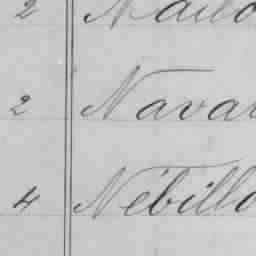 2 Nailo
2 Navar
4 Nébillo